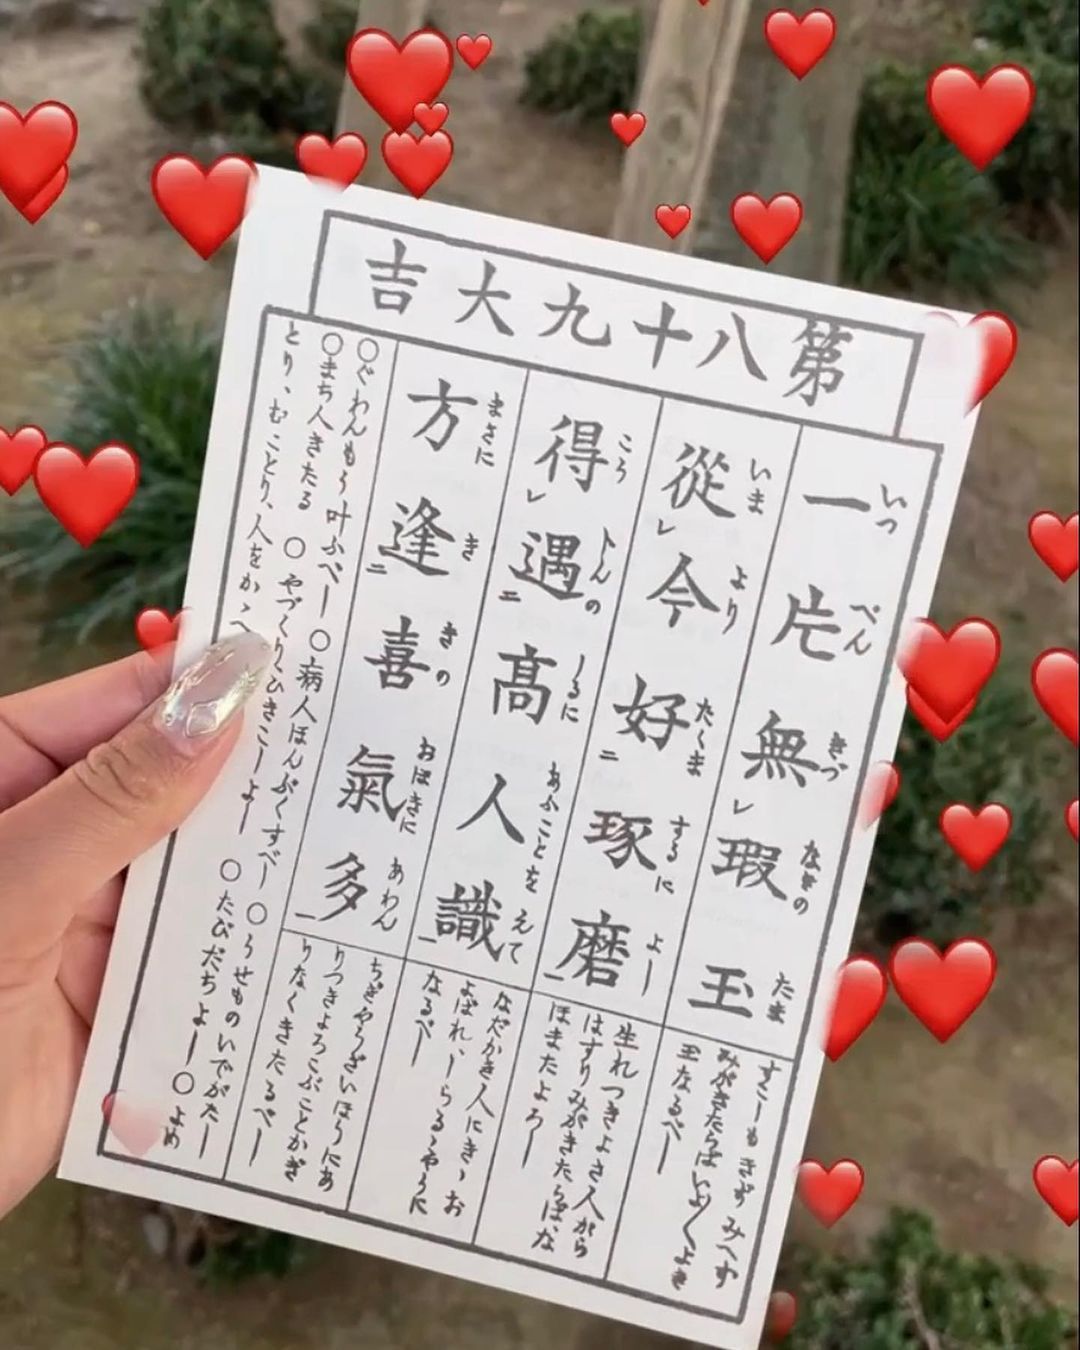 第八十九大吉
一片無瑕玉
いつ ぺん きづ なきの たま
すこしもきずみへず
みがきたらばいよ〱よき
玉なるべし
從レ今好二琢磨一
いま より たくま するに よし
生れつきよき人がら
はすりみがきたらば、な
ほまたよろし
得レ遇二高人識一
こう トんの しるに あふことを えて
なだかき人にきゝお
よばれ、しらるゝやうに
なるべし
方逢二喜氣多一
まさに き きの おほきに あわん
ちぎやうざいほうにあ
りつきよろこぶことかぎ
りなくきたるべし
〇ぐわんもう叶ふべし〇病人ほんぷくすべし〇うせものいでがたし
〇まち人きたる〇やづくりひきこしよし〇たびだちよし〇よめ
とり、むことり、人をかゝへ